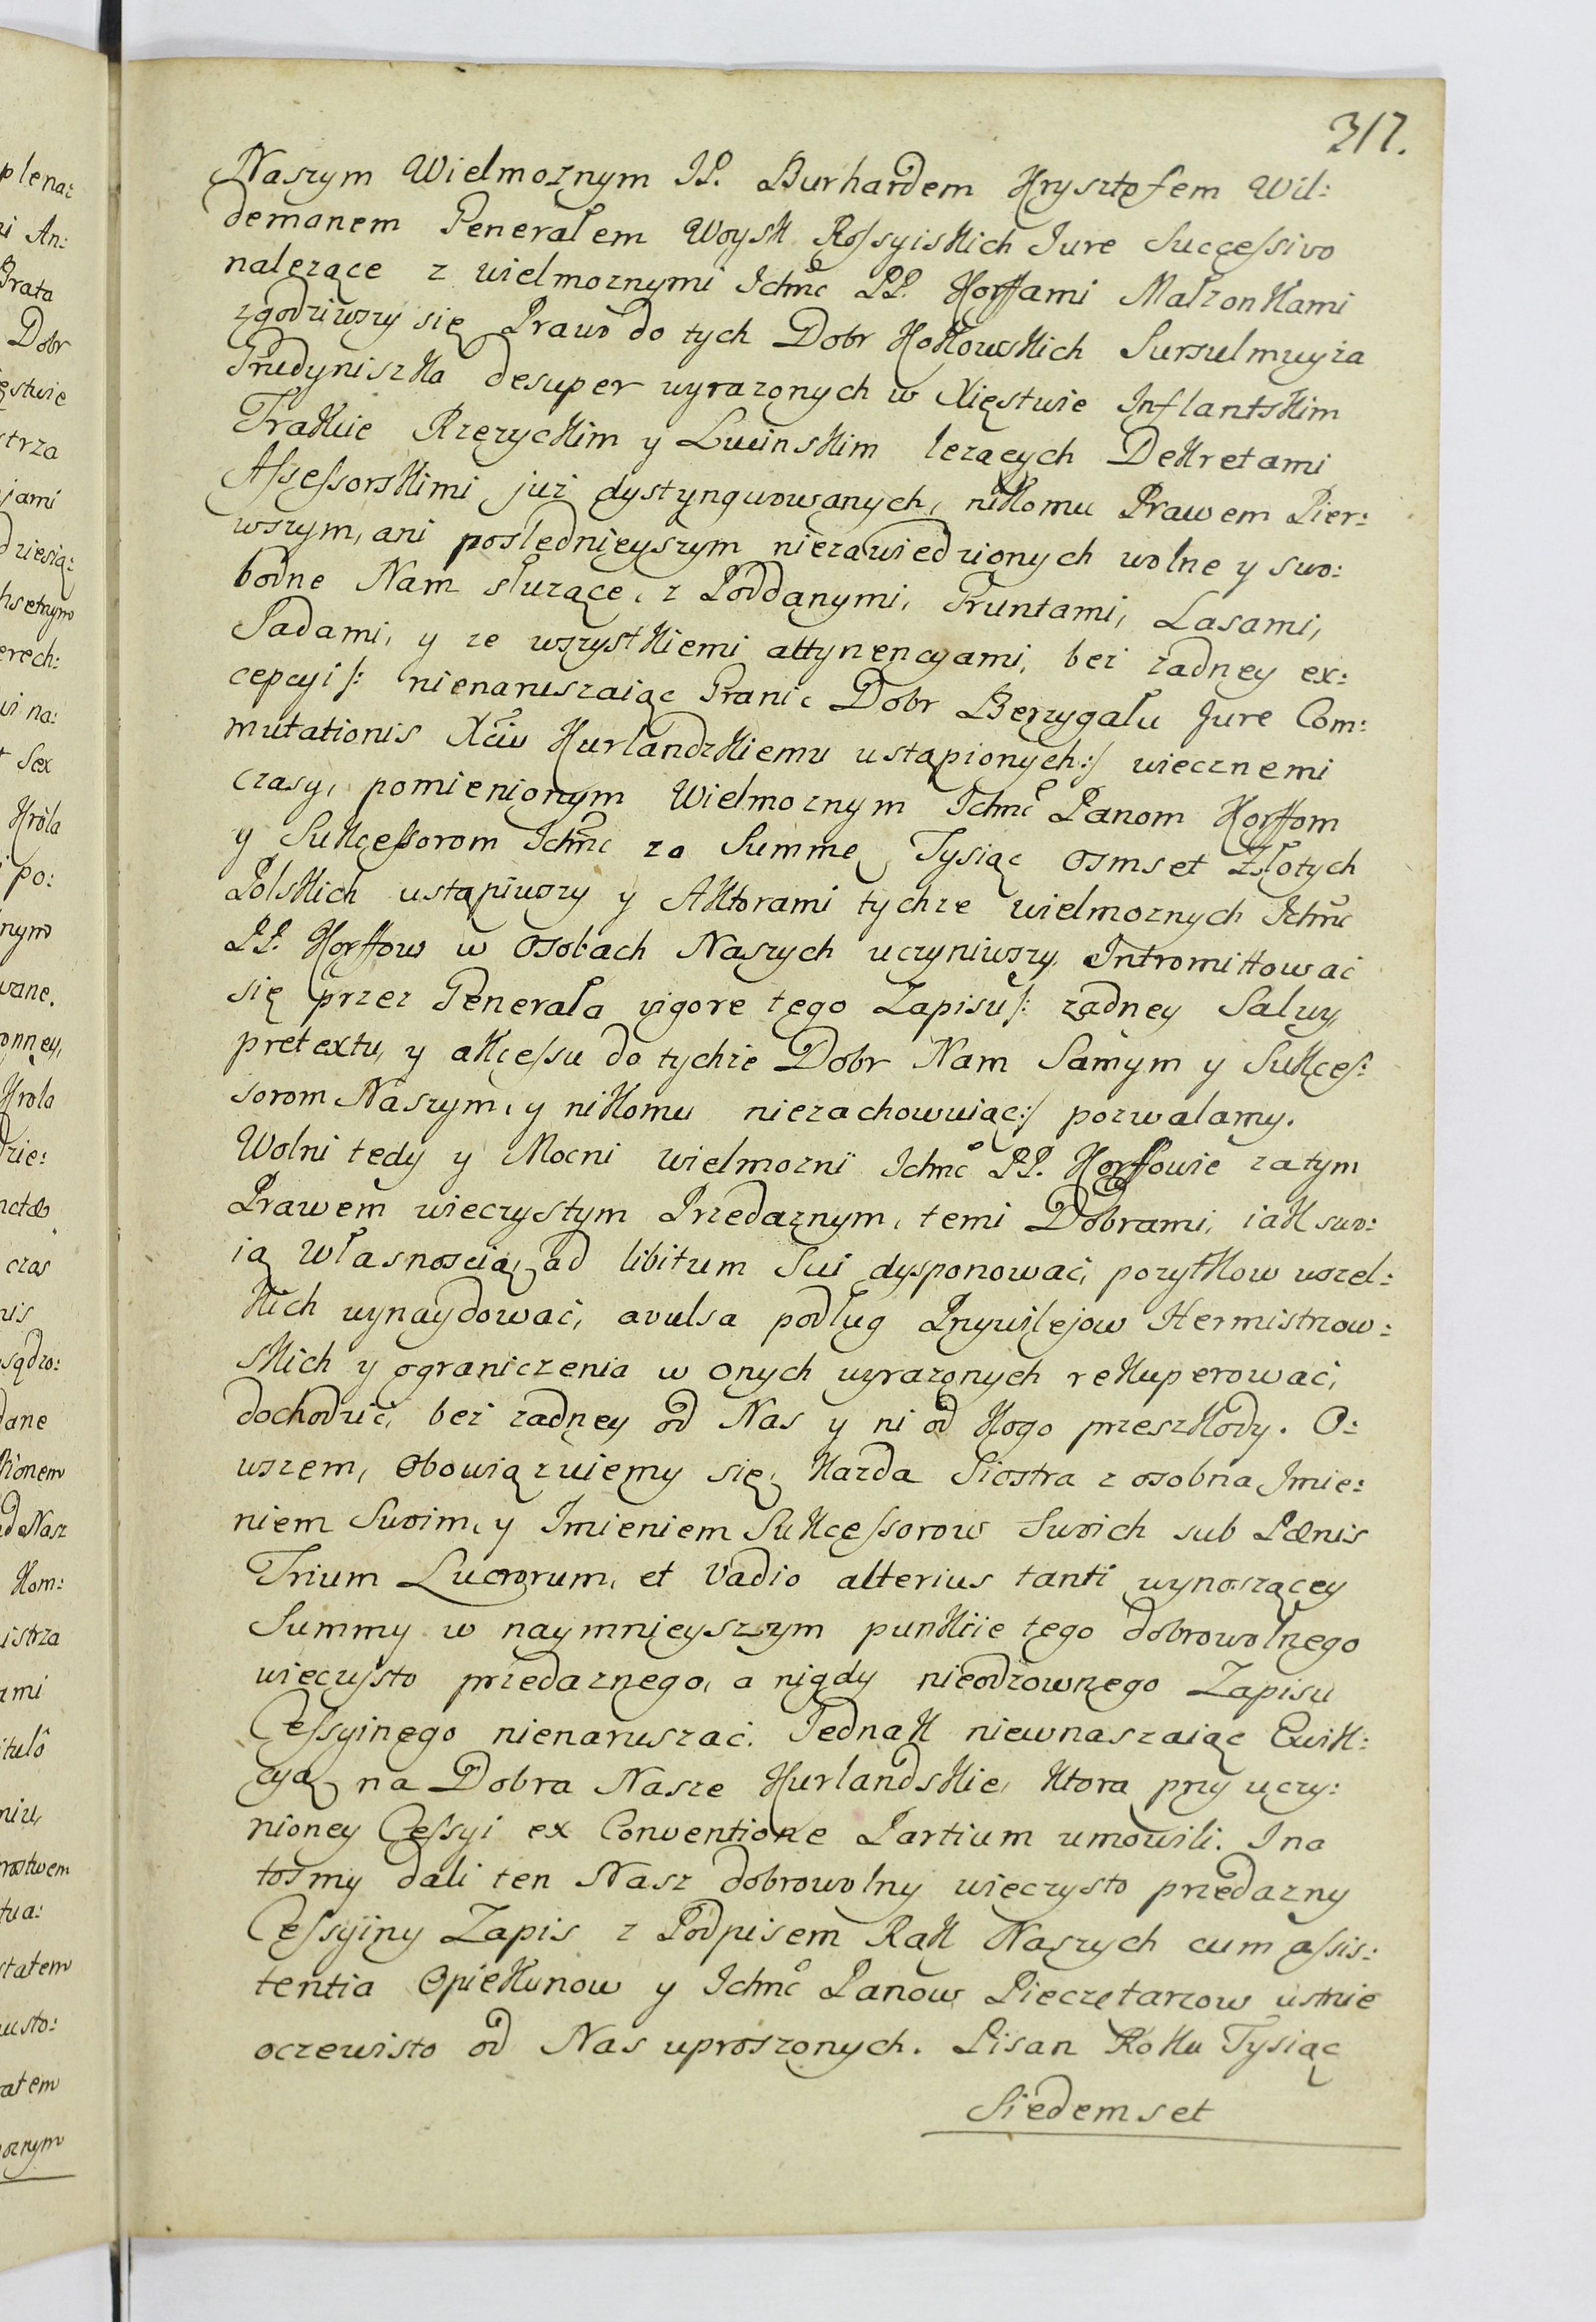 317.
Naszym Wielmożnym JP. Burhardem Krysztofem Wil:
demanem Generałem Woysk Rossyiskich Jure Successivo
nalezące z wielmoznymi Ichmc PP. Korffami Małzonkami
zgodziwszy się Prawo do tych Dobr Kokowskich Sursulmuyża
Grudyniszka desuper wyrazonych w Xięstwie Inflantskim
Trakcie Rzezyckim y Lucinskim lezących Dekretami
Assessorskimi już dystyngwowanych, nikomu Prawem Pier:
wszym, ani poslednieyszym niezawiedzionych wolne y swo:
bodne Nam słuzące, z Poddanymi, Gruntami, Lasami,
Sadami, y ze wszystkiemi attynencyami, bez zadney ex:
cepcyi /: nienaruszaiąc Granic Dobr Berzygału Jure Com:
mutationis Xciu Kurlandzkiemu ustąpionych :/ wiecznemi
czasy, pomienionym Wielmoznym Ichmc Panom Korffom
y Sukcessorom Ichmc za Summę Tysiąc osmset Złotych
Polskich ustąpiwszy y Aktorami tychze wielmoznych Ichmc
PP. Korffow w osobach Naszych uczyniwszy Intromittować
się przez Generała vigore tego Zapisu /: zadney Salwy,
pretextu, y akcessu do tychże Dobr Nam Samym y Sukces:
sorom Naszym, y nikomu niezachowuiąc :/ pozwalamy.
Wolni tedy y Mocni wielmozni Ichmc PP. Korffowie za tym
Prawem wieczystym Przedaznym, temi Dobrami, iak swo:
ią własnoscią, ad libitum Sui dysponować, pozytkow wszel:
kich wynaydować, avulsa podług Przywilejow Hermistrzow:
skich y ograniczenia w onych wyrazonych rekuperować,
dochodzić, beż zadney od Nas y ni od Kogo przeszkody. O:
wszem, obowiązuiemy się, kazda Siostra z osobna Imie:
niem Swoim, y Imieniem Sukcessorow Swoich sub Pænis
Trium Lucrorum, et Vadio alterius tanti wynoszącey
Summy w naymnieyszym punkcie tego dobrowolnego
wieczysto przedaznego, a nigdy nieodzownego Zapisu
Cessyinego nienaruszać. Jednak niewnaszaiąc Ewik:
cyą na Dobra Nasze Kurlandskie, Ktora przy uczy:
nioney Cessyi ex Conventione Partium umowili. I na
tośmy dali ten Nasz dobrowolny wieczysto przedazny
Cessyiny Zapis z Podpisem Rąk Naszych cum assis:
tentia Opiekunow y Ichmc Panow Pieczętarzow ustnie
oczewisto od Nas uproszonych. Pisan Roku Tysiąc
Siedemset